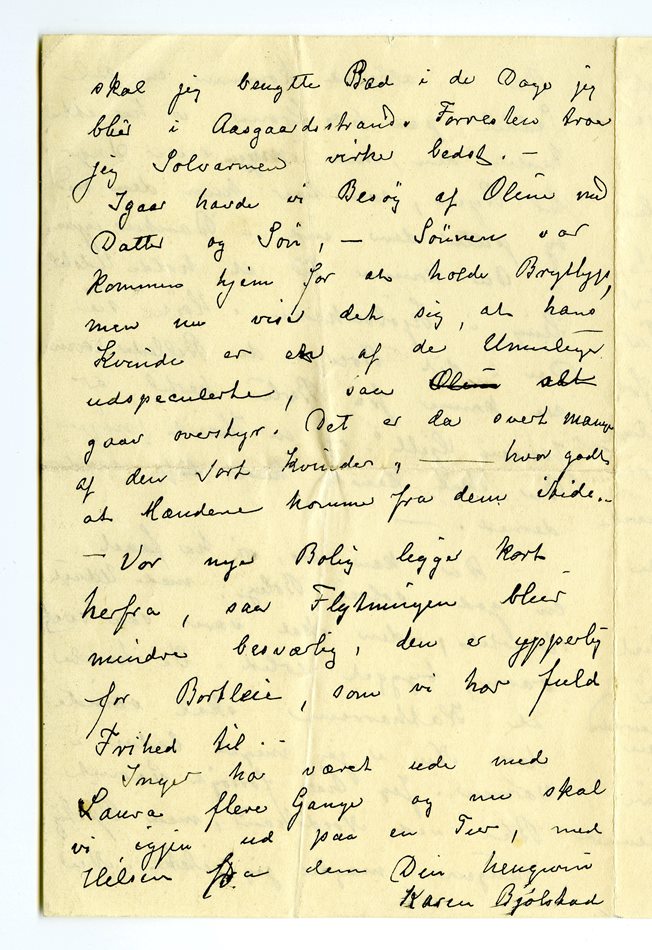 skal jeg benytte Bad i de Dage jeg
blir i Aasgaardsstrand. Forresten tror
jeg Solvarmen virker bedst. —
Igaar havde vi Besøg af Olein med
Datter og Søn, — Sønnen var
kommen hjem for at holde Bryllyp,
men nu viser det sig, at hans
Kvinde er en af de Umulige
udspeculerte, saa alt
gaar overstyr. Det er da svert mange
af den Sort Kvinder, — hvor godt
at Mændene kommer fra dem itide. —
— Vor nye Bolig ligger kort
herfra, saa Flytningen blir
mindre besværlig, den er ypperlig
for Bortleie, som vi har fuld
Frihed til. —
Inger har været ude med
Laura flere Gange og nu skal
vi igjen ud paa en Tur, med
Hilsen fra dem Din hengivne
Karen Bjølstad